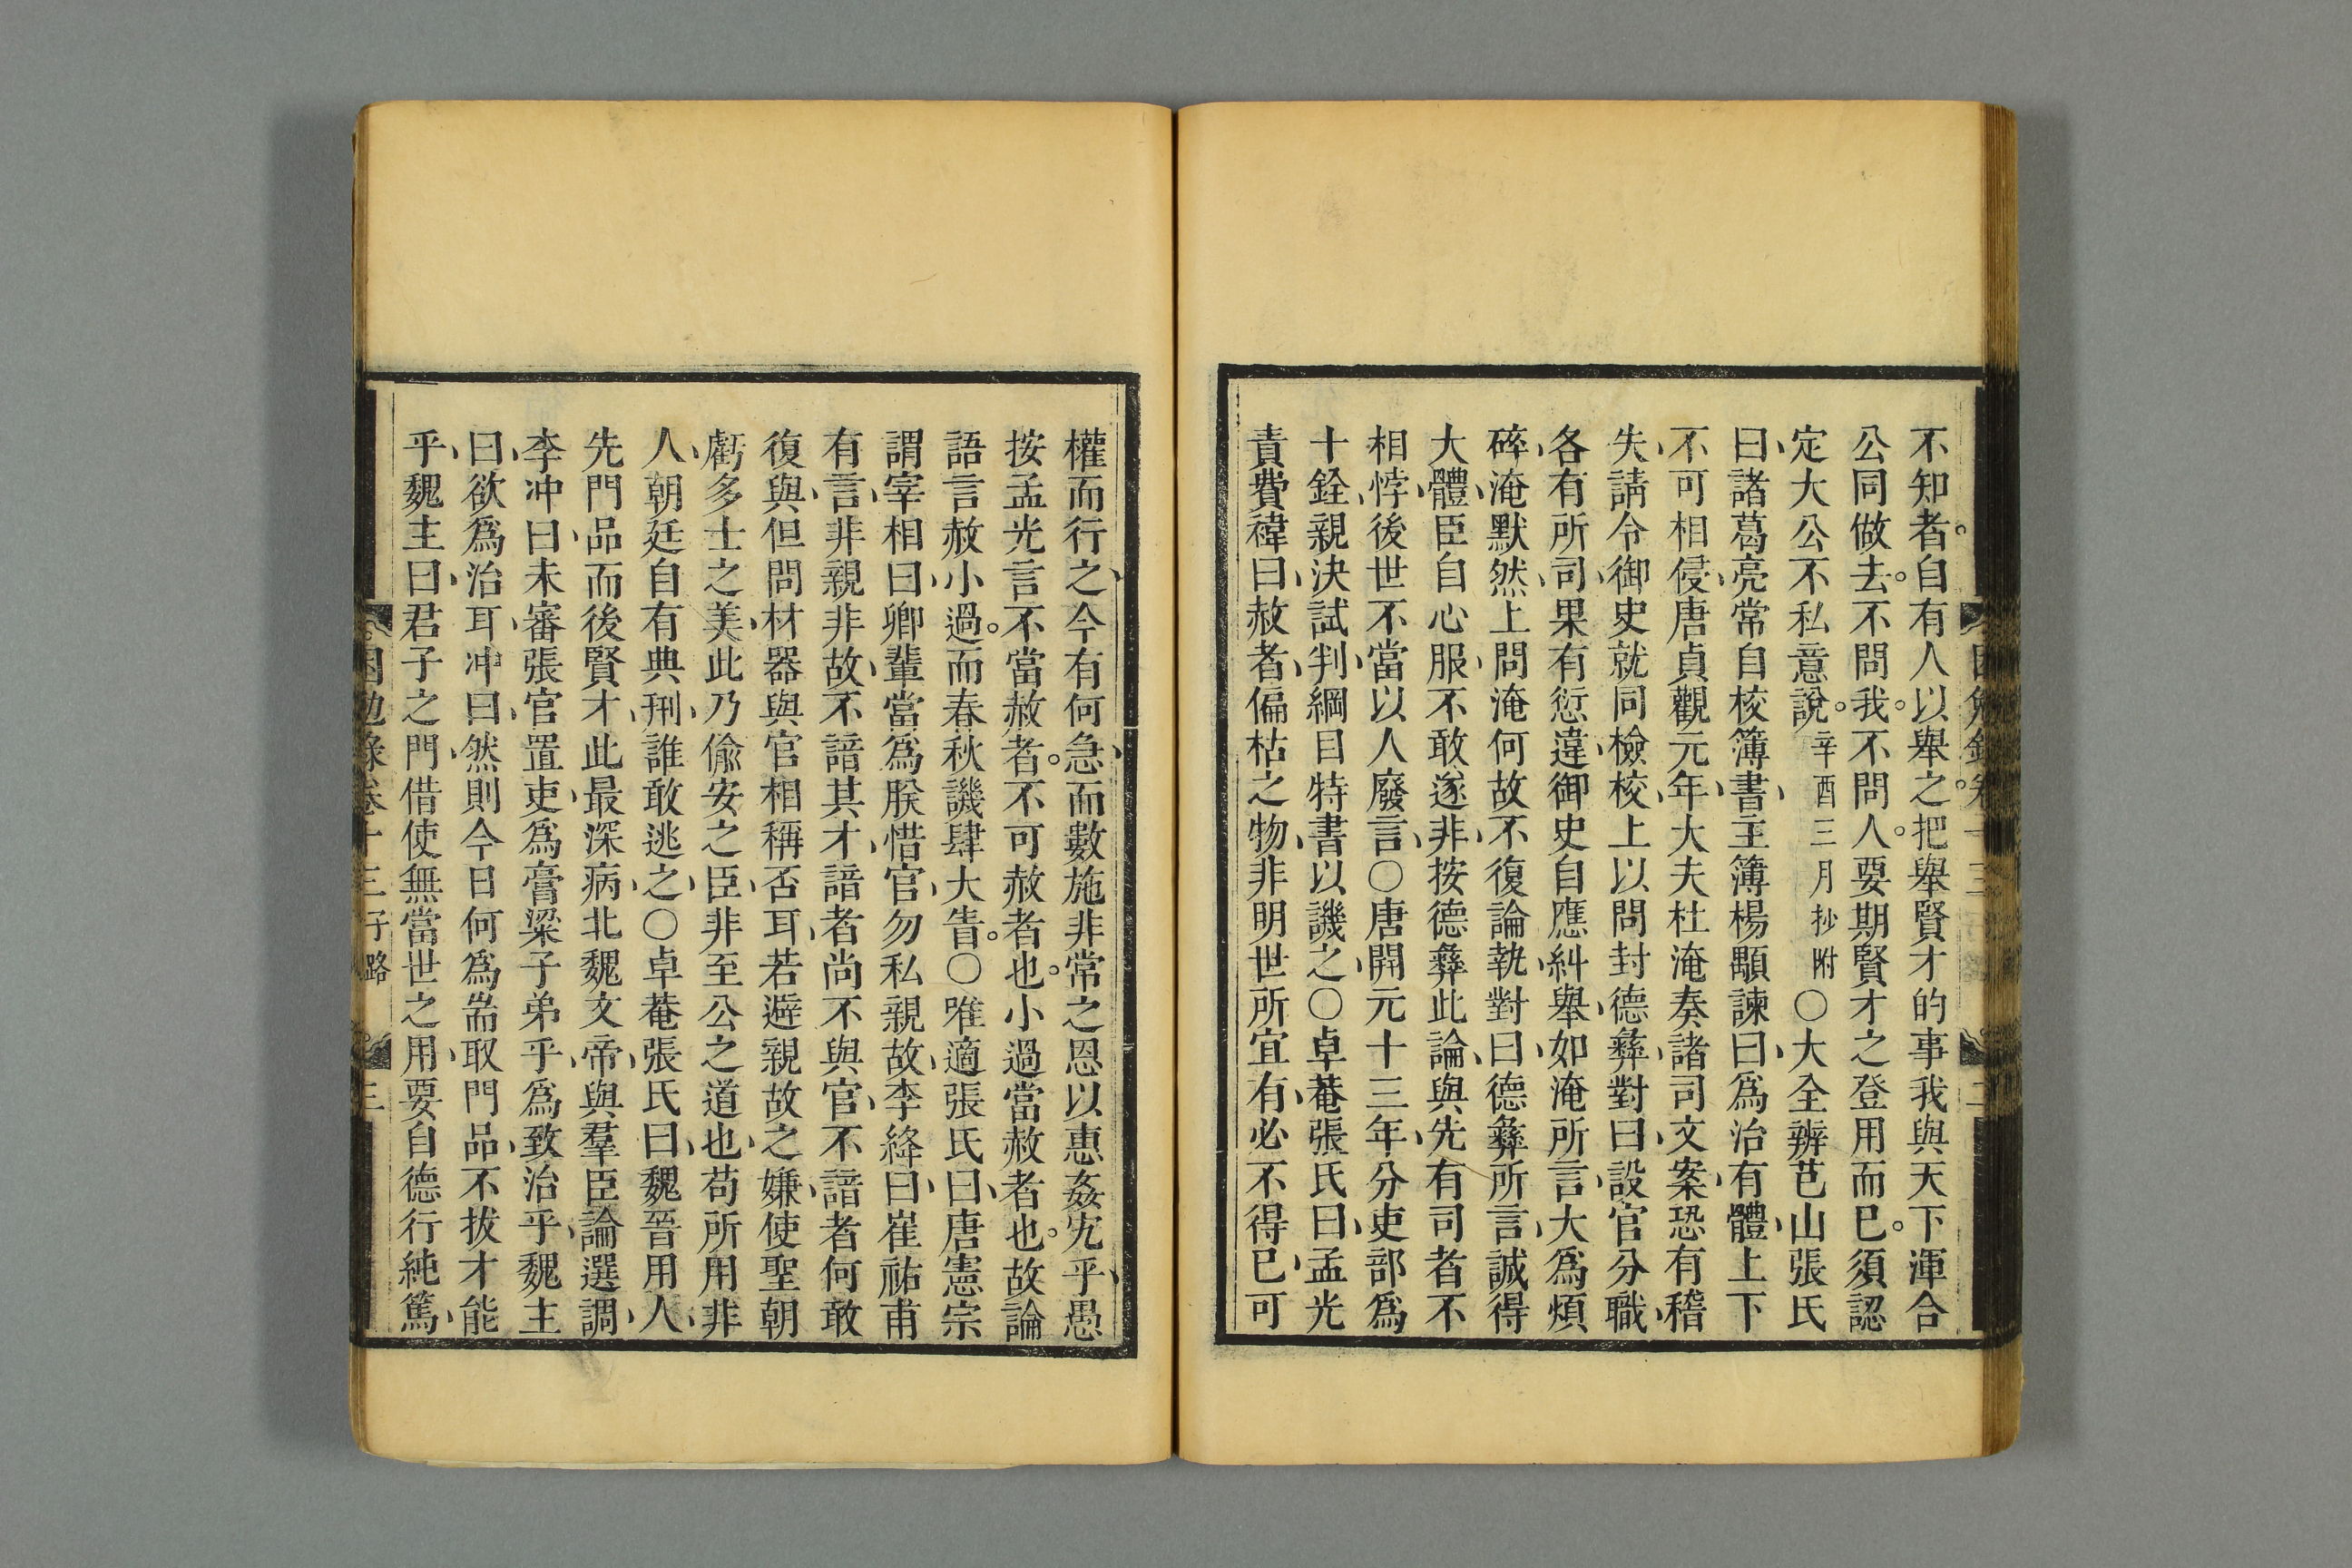 不知者。自有人以舉之。把舉賢才的事我與天下渾合
公同做去。不問我。不問人。要期賢才之登用而已。須認
定大公不私意說。辛酉三月抄附〇大全辨芑山張氏
曰、諸葛亮常自校簿書、主簿楊顒諫曰、爲治有體、上下
不可相侵、唐貞觀元年、大夫杜淹奏諸司文案、恐有稽
失、請令御史就同檢校、上以問封德彝、對曰、設官分職、
各有所司、果有愆違、御史自應糾舉、如淹所言、大爲煩
碎、淹默然、上問淹何故不復論執、對曰、德彝所言、誠得
大體、臣自心服、不敢遂非、按德彝此論、與先有司者不
相悖、後世不當以人廢言、〇唐開元十三年、分吏部爲
十銓、親決試判、綱目特書以譏之、〇卓菴張氏曰、孟光
責費禕曰、赦者、偏枯之物、非明世所宜有、必不得已、可
權而行之、今有何急、而數施非常之恩以惠姦宄乎、愚
按孟光言不當赦者。不可赦者也。小過當赦者也。故論
語言赦小過。而春秋譏肆大眚。〇唯適張氏曰、唐憲宗
謂宰相曰、卿輩當爲朕惜官、勿私親故、李絳曰、崔祐甫
有言、非親非故、不諳其才、諳者尚不與官、不諳者何敢
復與、但問材器與官相稱否耳、若避親故之嫌、使聖朝
虧多士之美、此乃偸安之臣、非至公之道也、苟所用非
人、朝廷自有典刑、誰敢逃之、〇卓菴張氏曰、魏晉用人、
先門品而後賢才、此最深病、北魏文帝、與羣臣論選調、
李冲曰、未審張官置吏、爲膏粱子弟乎、爲致治乎、魏主
曰、欲爲治耳、冲曰、然則今日何爲耑取門品、不拔才能
乎、魏主曰、君子之門、借使無當世之用、要自德行純篤、
困勉錄卷十三 子路 三